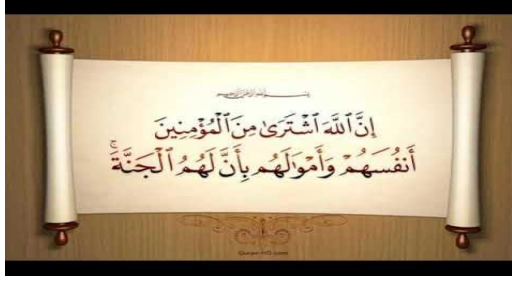 بسم الله الرحمن الرحيم
إِنَّ ٱللَّهَ ٱشْتَرَىٰ مِنَ ٱلْمُؤْمِنِينَ
أَنفُسَهُمْ وَأَمْوَٰلَهُم بِأَنَّ لَهُمُ ٱلْجَنَّةَ ۚ
Quran-HD.com